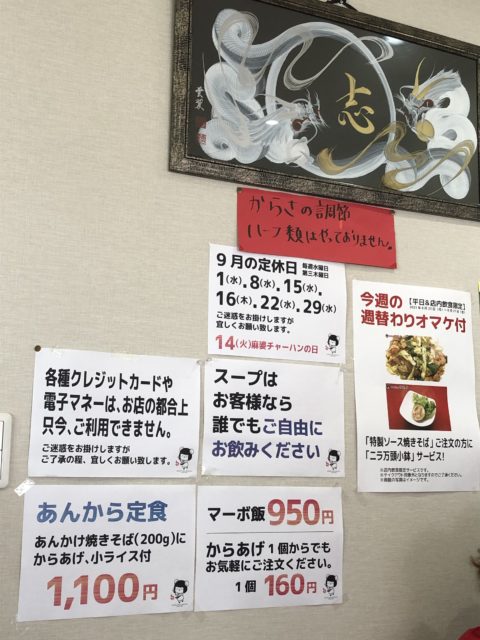 志
からさの調節
ハーフ類はやっておりません。
9月の定休日 毎週水曜日
第三木曜日
1(水).8(水).15(水).
16(木).22(水).29(水)
ご迷惑をお掛けしますが
宜しくお願い致します。
14(火)麻婆チャーハンの日
今週の【平日&店内飲食限定】
週替わりオマケ付
「特製ソース焼きそば」ご注文の方に
「ニラ万頭小鉢」サービス!
※店内飲食限定サービスです。
各種クレジットカードや
電子マネーは、お店の都合上
只今、ご利用できません。
ご迷惑をお掛けしますが
ご了承の程、宜しくお願い致します。
スープは
お客様なら
誰でもご自由に
お飲みください
あんから定食
あんかけ焼きそば(200g)に
からあげ、小ライス付
1,100円
マーボ飯 950円
からあげ1個からでも
お気軽にご注文ください。
1個 160円